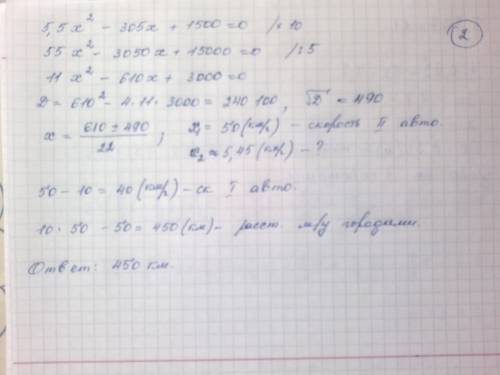 2
5,5x² - 305x + 1500 = 0 /· 10
55x² - 3050x + 15000 = 0 /: 5
11x² - 610x + 3000 = 0
D = 610² - 4·11·3000 = 240 100, √D = 490
x = (610 ± 490)/22 ; x₁ = 50 (км/ч) - скорость II авто.
x₂ ≈ 5,45 (км/ч) - ?
50 - 10 = 40 (км/ч) - ск. I авто.
10 · 50 - 50 = 450 (км) - расст. м/у городами.
Ответ: 450 км.